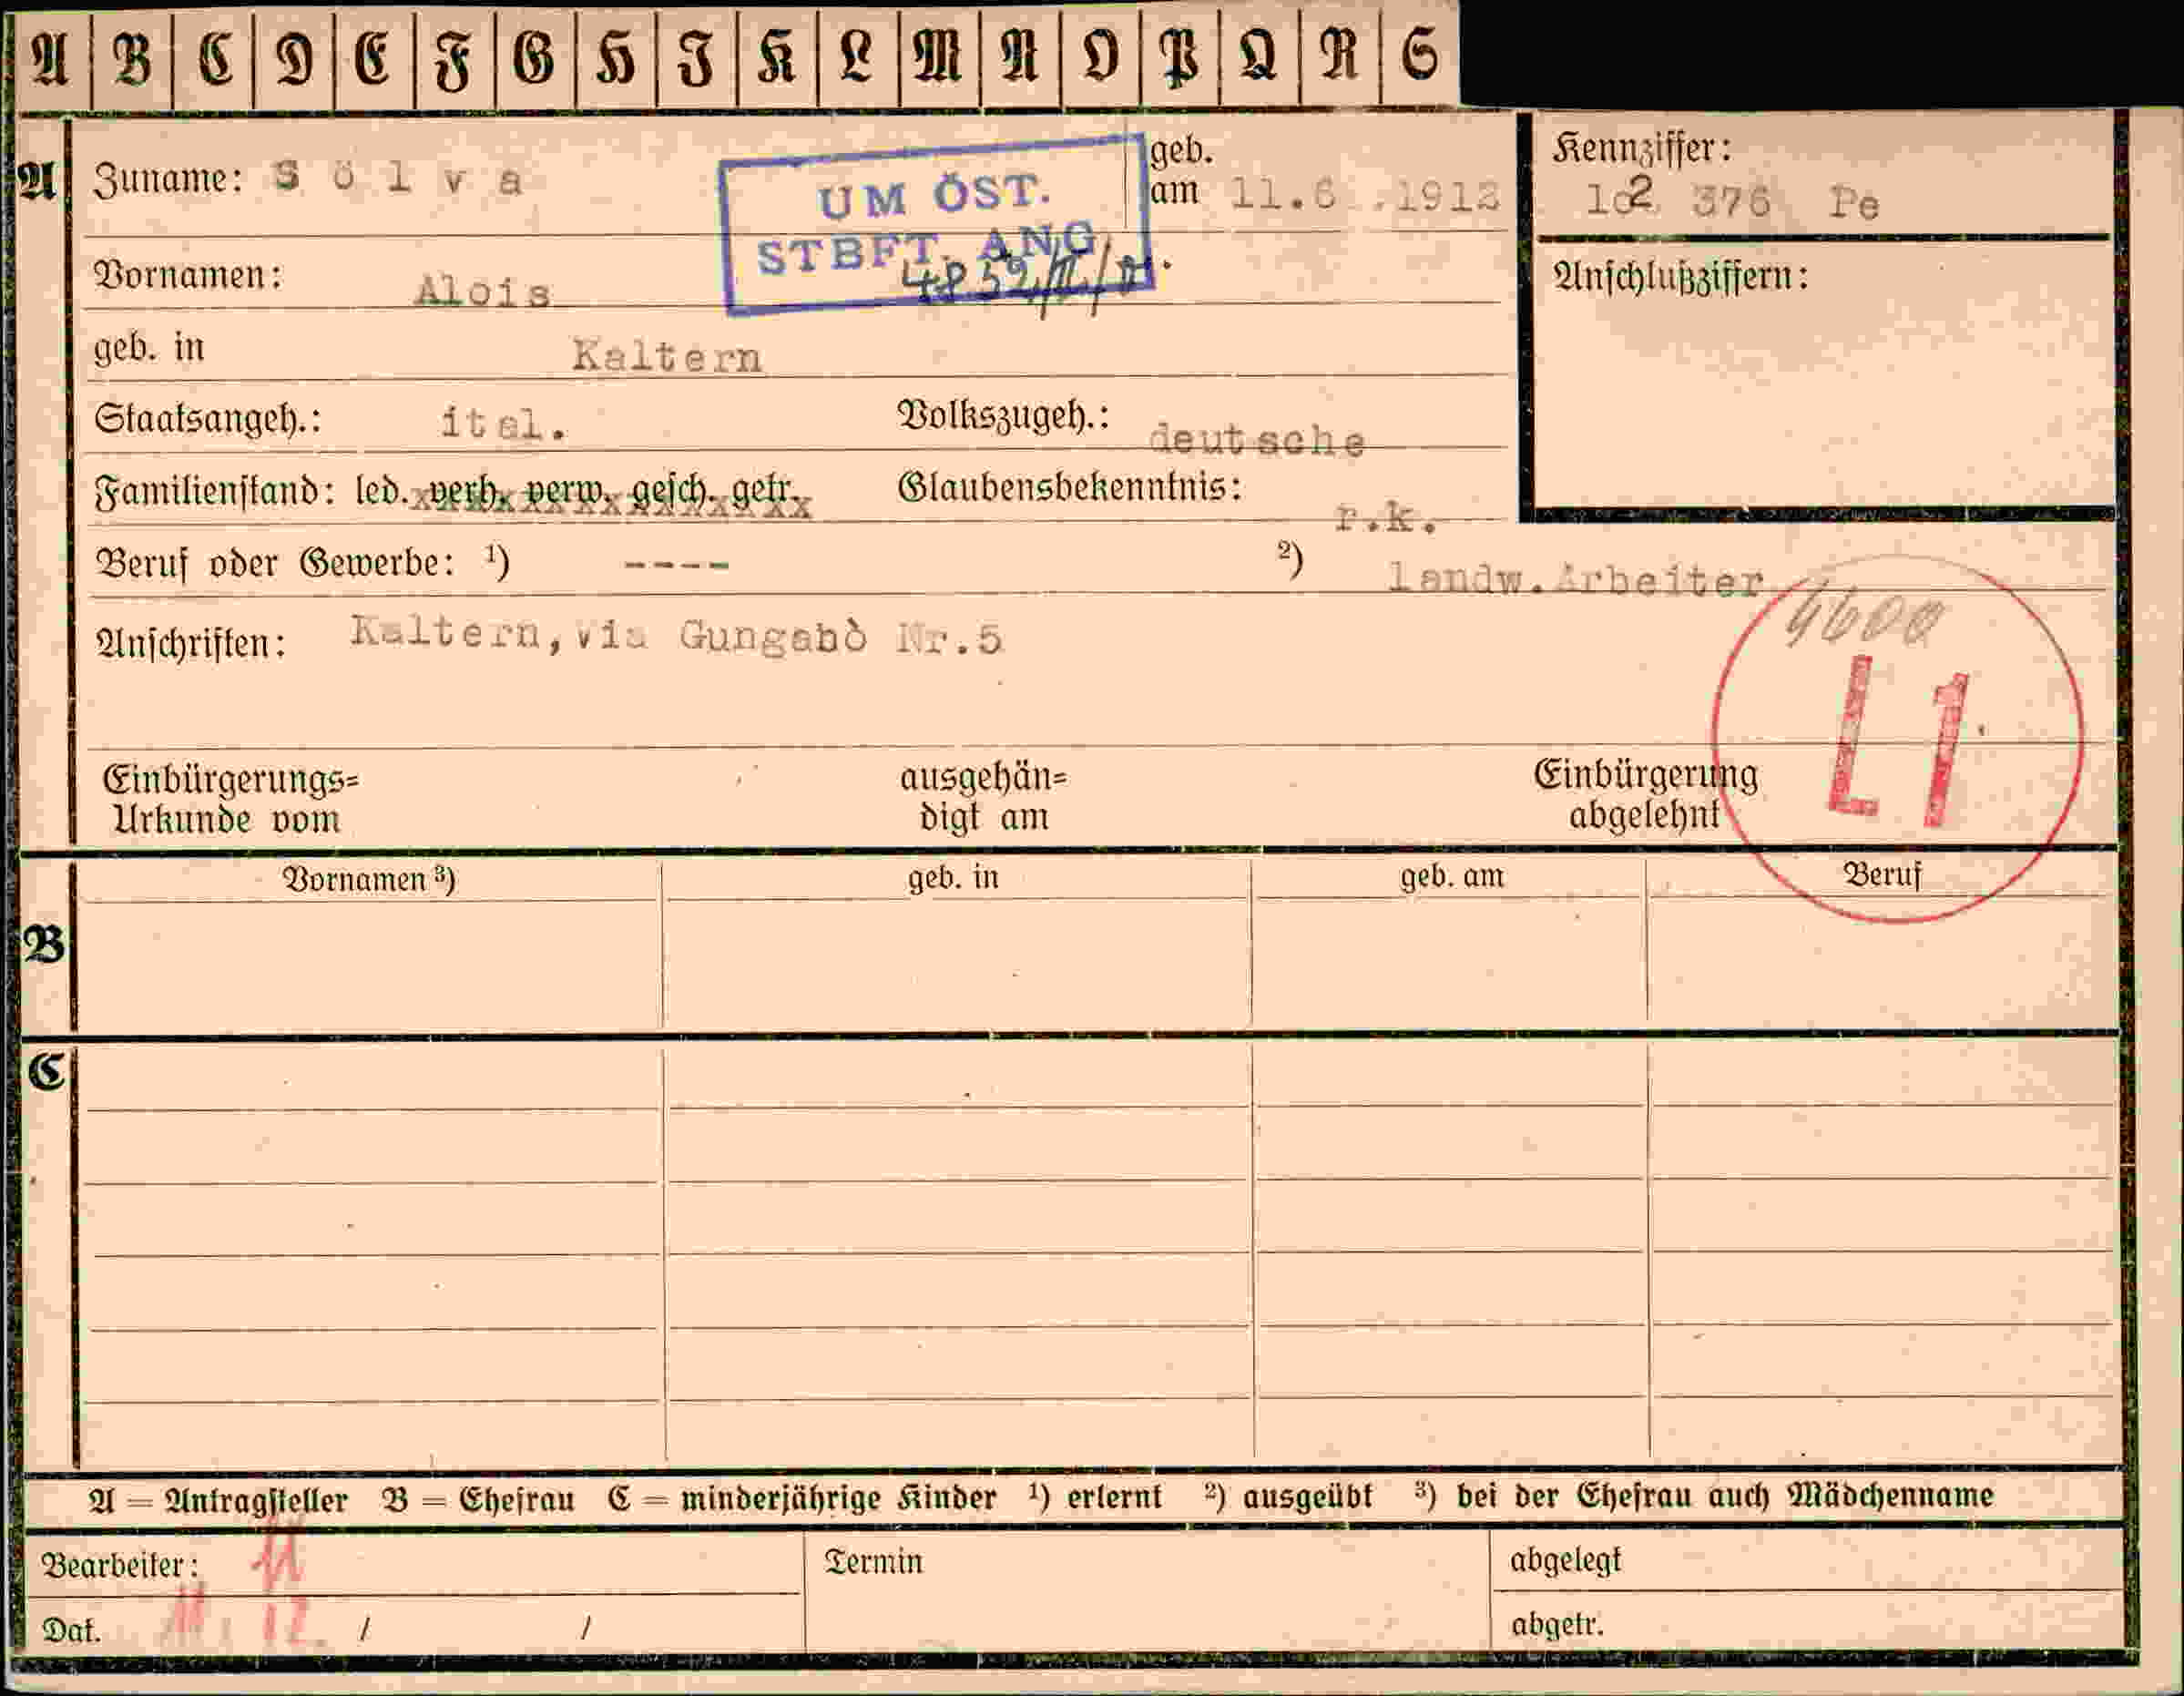 A B C D E F G H I K L M N O P Q R S
A
Zuname: S ö l v a
geb.
am 11.6 .1912
Kennziffer:
102 376 Pe
UM ÖST.
STBFT. ANG.
Vornamen: Alois
Anschlußziffern:
geb. in Kaltern
Staatsangeh.: ital. Volkszugeh.: deutsche
Familienstand: led. verh. verw. gesch. getr. Glaubensbekenntnis: r.k.
Beruf oder Gewerbe: ¹) ---- ²) landw.Arbeiter
Anschriften: Kaltern, via Gungabò Nr.5
4600
L1
Einbürgerungs=
Urkunde vom
ausgehän=
digt am
Einbürgerung
abgelehnt
B
Vornamen ³) geb. in geb. am Beruf
C
A = Antragsteller B = Ehefrau C = minderjährige Kinder ¹) erlernt ²) ausgeübt ³) bei der Ehefrau auch Mädchenname
Bearbeiter: Termin abgelegt
Dat. / / abgetr.